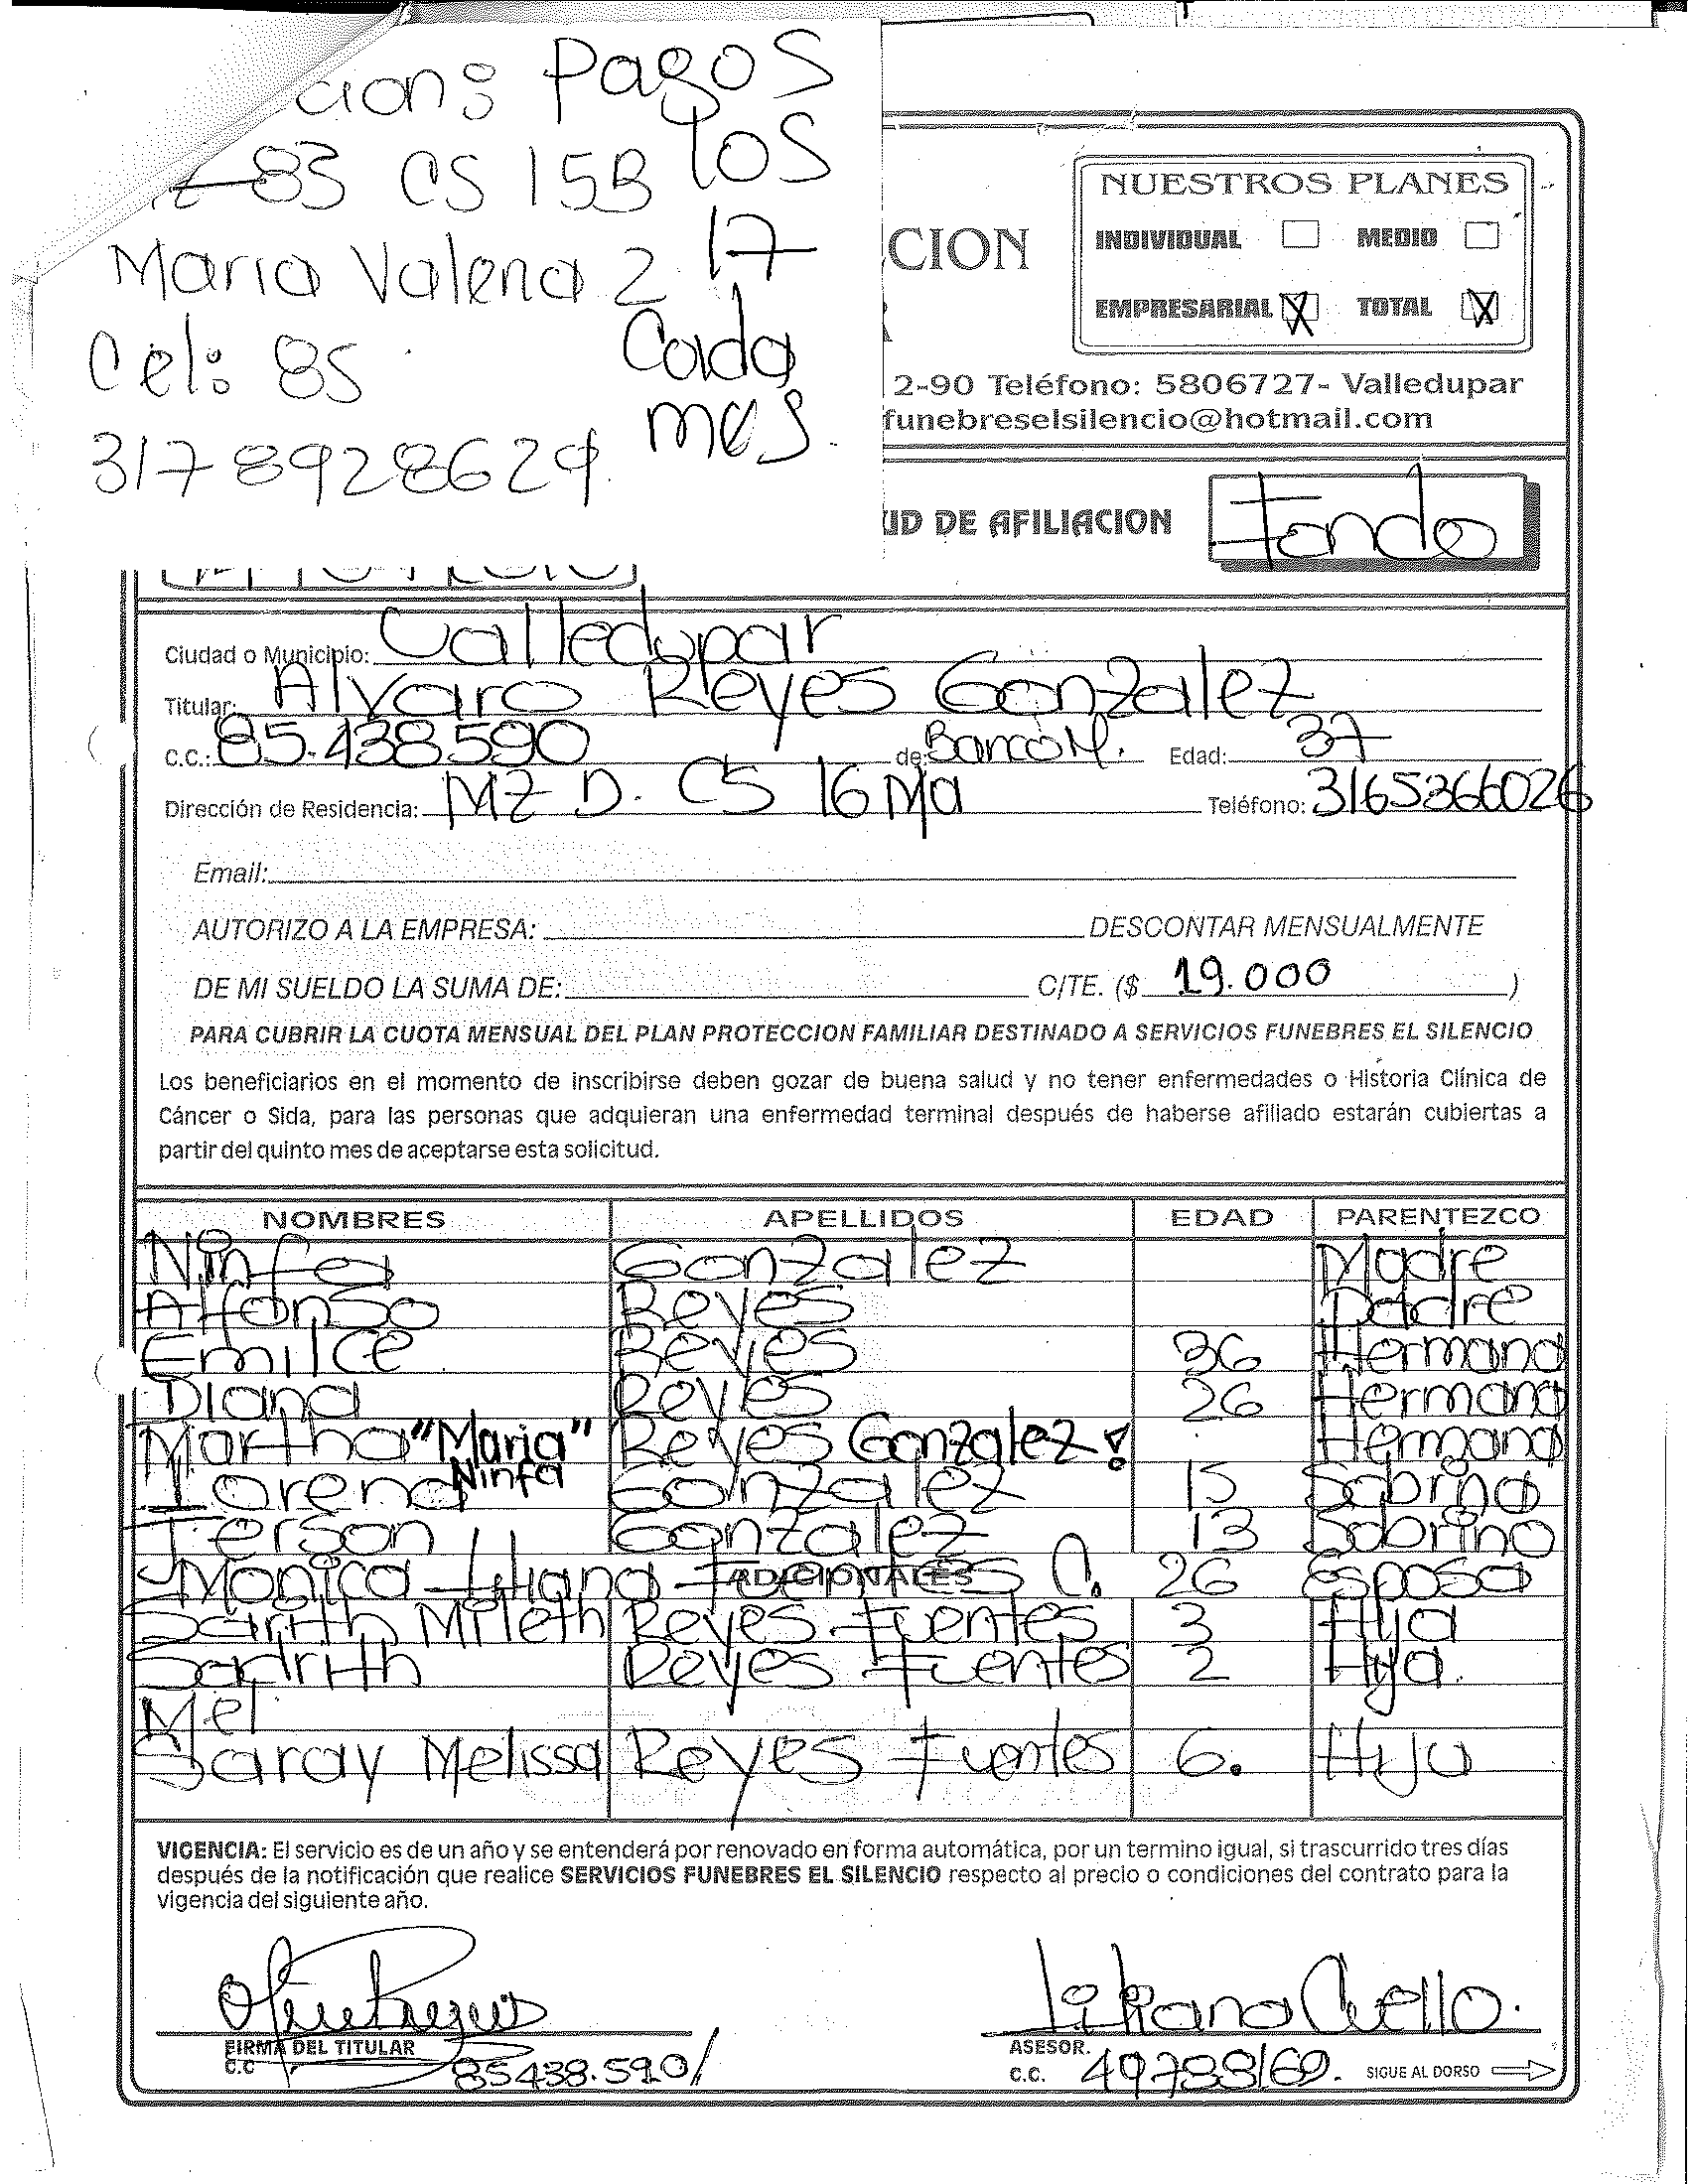 cion: Pagos
83 CS 15B los
Maria Valeria 2 17
Cel: 85 Cada
3178928629 mes.
NUESTROS PLANES
INDIVIDUAL MEDIO
EMPRESARIAL X TOTAL X
CION
2-90 Teléfono: 5806727- Valledupar
funebreselsilencio@hotmail.com
UD DE AFILIACION Fondo
Ciudad o Municipio: Valledupar
Titular: Alvaro Reyes Gonzalez
C.C.: 85.438.590 de: Banco M. Edad: 37
Dirección de Residencia: MZ D. CS 16 Ma Teléfono: 3165366026
Email:
AUTORIZO A LA EMPRESA: DESCONTAR MENSUALMENTE
DE MI SUELDO LA SUMA DE: C/TE. ($ 19.000 )
PARA CUBRIR LA CUOTA MENSUAL DEL PLAN PROTECCION FAMILIAR DESTINADO A SERVICIOS FUNEBRES EL SILENCIO
Los beneficiarios en el momento de inscribirse deben gozar de buena salud y no tener enfermedades o Historia Clínica de
Cáncer o Sida, para las personas que adquieran una enfermedad terminal después de haberse afiliado estarán cubiertas a
partir del quinto mes de aceptarse esta solicitud.
NOMBRES APELLIDOS EDAD PARENTEZCO
Ninfa Gonzalez Madre
Alfonso Reyes Padre
Emilce Reyes 36 Hermana
Diana Reyes 26 Hermana
Martha "Maria" Reyes Gonzalez! Hermana
Ninfa
Lorena Gonzalez 15 Sobrina
Jerson Gonzalez 13 Sobrino
ADICIONALES
Monica Liliana Fuentes C. 26 Esposa
Sarith Mileth Reyes Fuentes 3 Hija
Sadrith Reyes Fuentes 2 Hija.
Mel
Saray Melissa Reyes Fuentes 6. Hija
VIGENCIA: El servicio es de un año y se entenderá por renovado en forma automática, por un termino igual, si trascurrido tres días
después de la notificación que realice SERVICIOS FUNEBRES EL SILENCIO respecto al precio o condiciones del contrato para la
vigencia del siguiente año.
Liliana Cuello.
FIRMA DEL TITULAR ASESOR.
C.C 85438.590/ C.C. 49788169. SIGUE AL DORSO